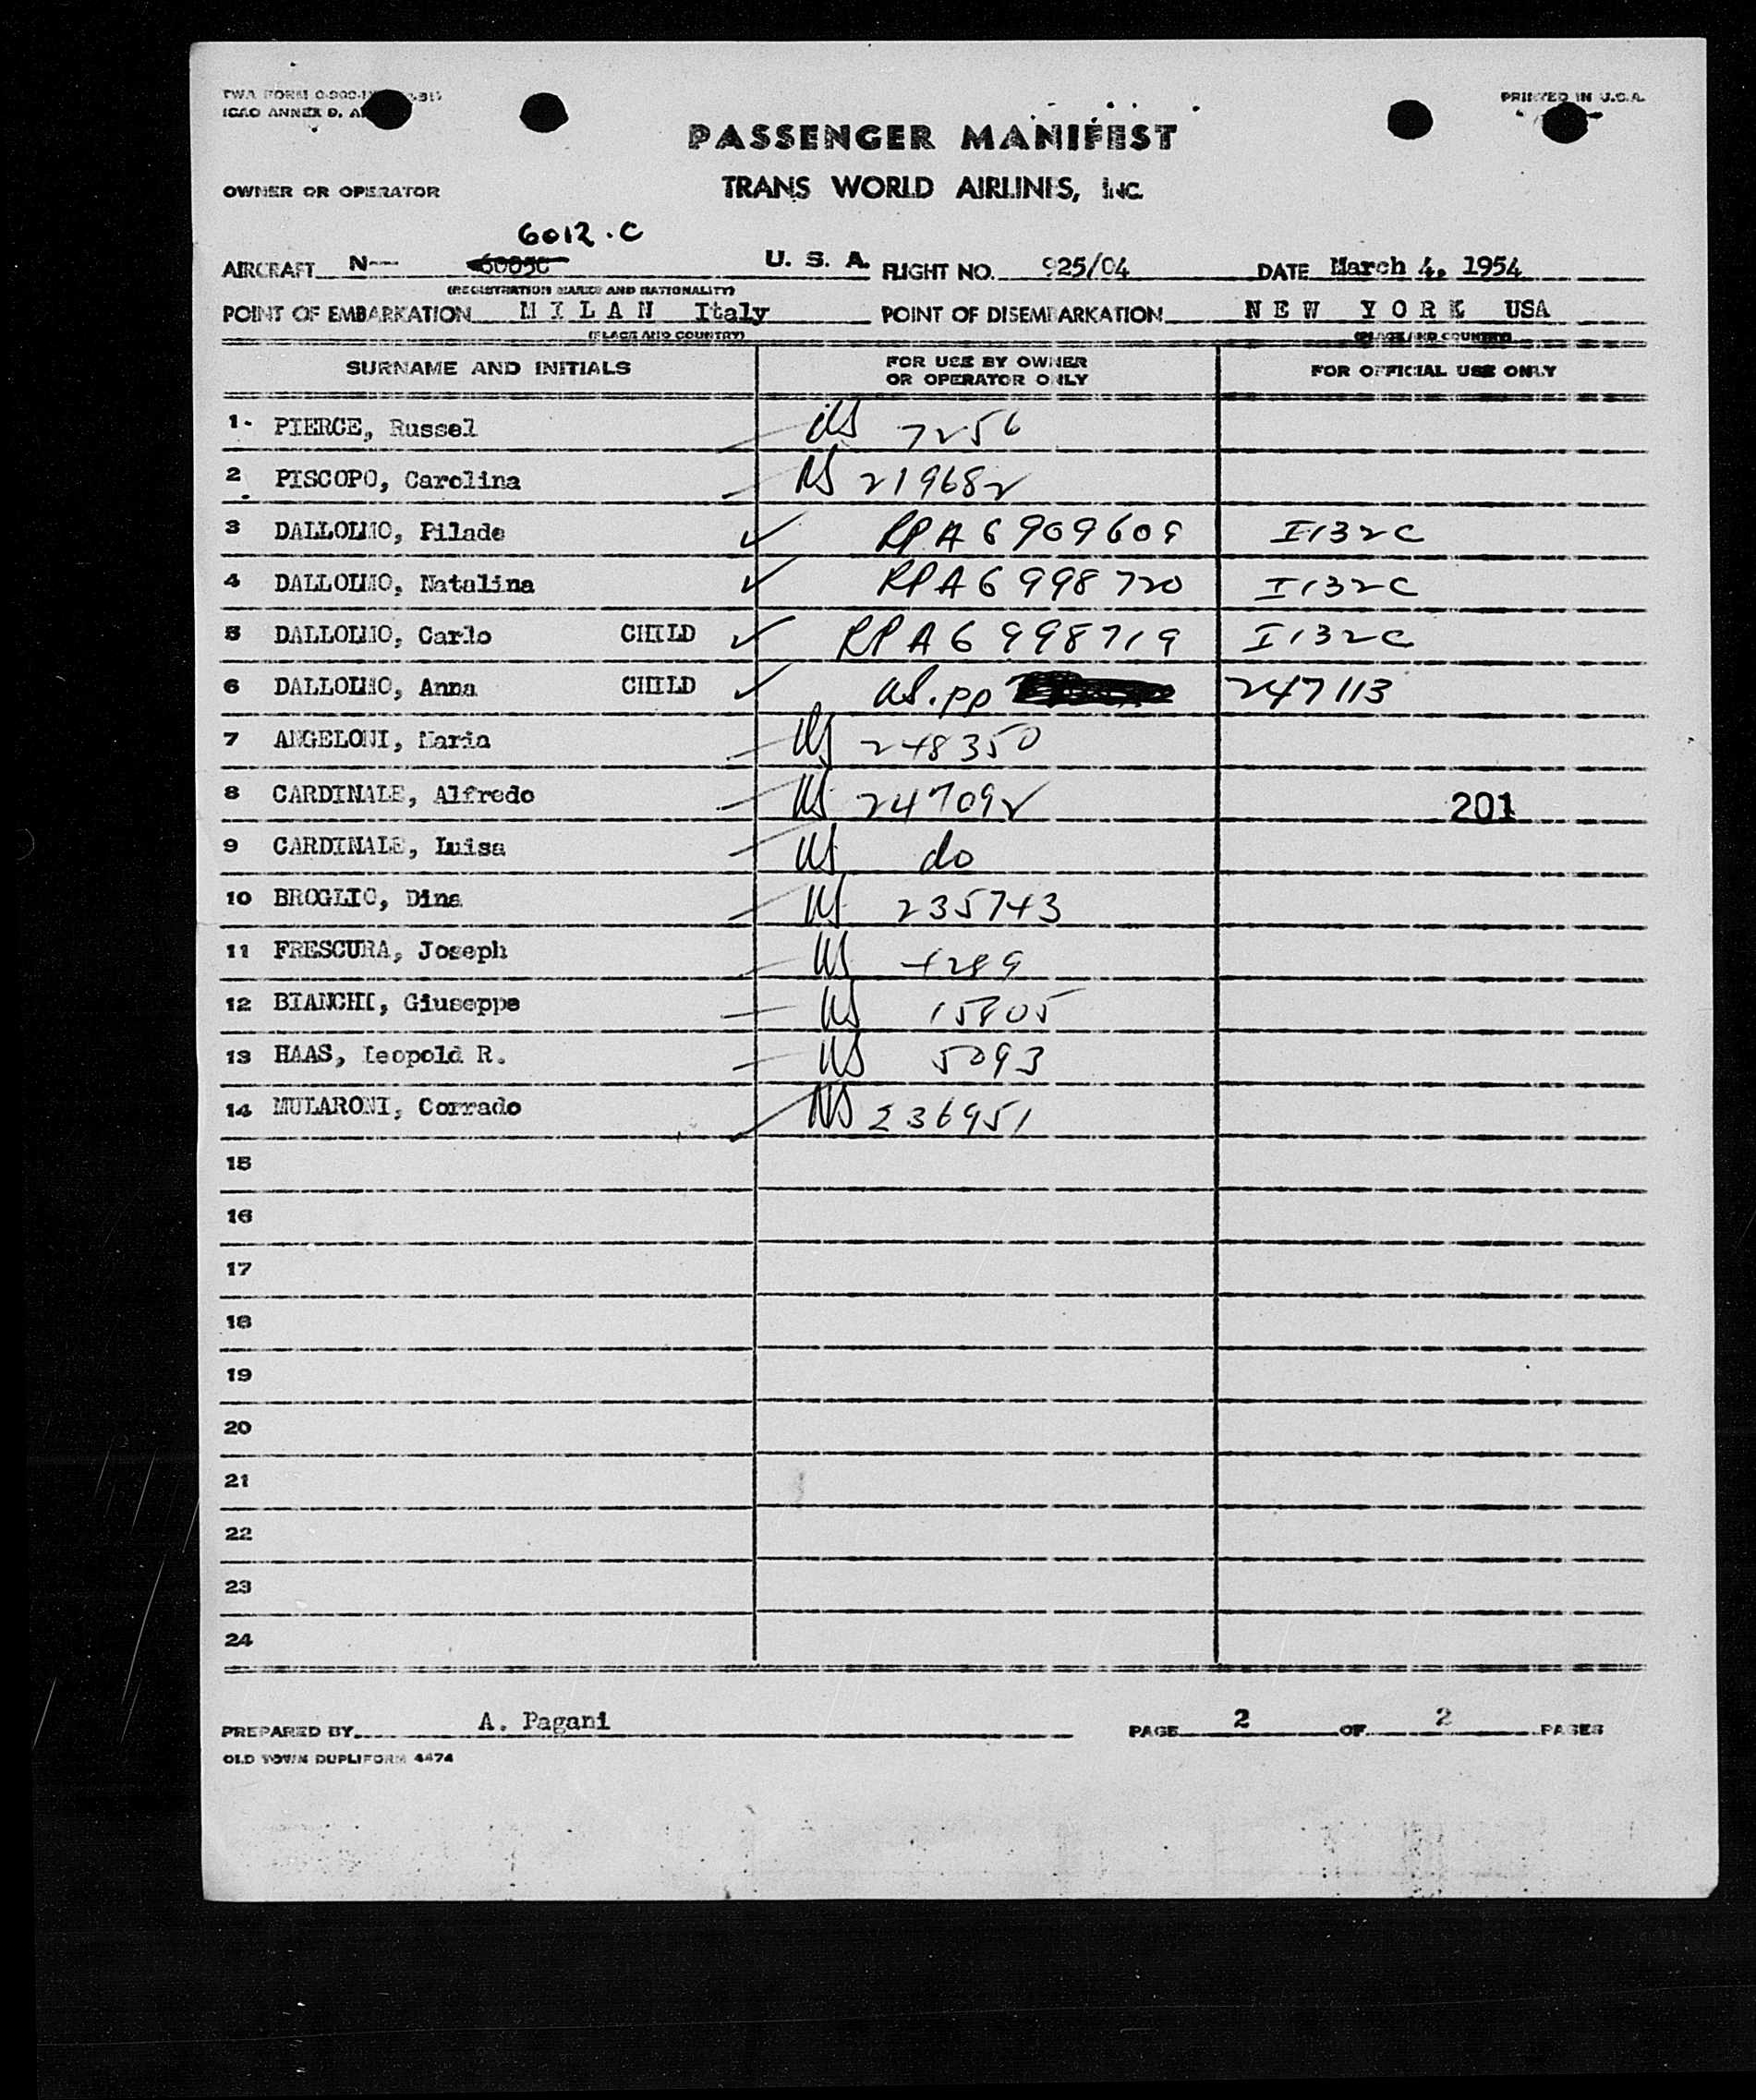 TWA FORM
ICAO ANNEX 9, PRINTED IN U.S.A.
PASSENGER MANIFEST
OWNER OR OPERATOR TRANS WORLD AIRLINES, INC.
6012.C
AIRCRAFT N-- U. S. A. FLIGHT NO. 925/04 DATE March 4, 1954
(REGISTRATION MARKS AND NATIONALITY)
POINT OF EMBARKATION M I L A N Italy POINT OF DISEMBARKATION N E W Y O R K USA
(PLACE AND COUNTRY) (PLACE AND COUNTRY)
SURNAME AND INITIALS FOR USE BY OWNER OR OPERATOR ONLY FOR OFFICIAL USE ONLY
1. PIERCE, Russel US 7256
2. PISCOPO, Carolina US 219682
3 DALLOLMO, Pilade ✓ RP A6 909609 I132C
4 DALLOLMO, Natalina ✓ RP A6 998720 I132C
5 DALLOLMO, Carlo CHILD ✓ RP A6 998719 I132C
6 DALLOLMO, Anna CHILD ✓ US.pp 247113
7 ANGELONI, Maria US 248350
8 CARDINALE, Alfredo US 247092 201
9 CARDINALE, Luisa US do
10 BROGLIO, Dina US 235743
11 FRESCURA, Joseph US 4289
12 BIANCHI, Giuseppe US 15805
13 HAAS, Leopold R. US 5093
14 MULARONI, Corrado US 236951
15
16
17
18
19
20
21
22
23
24
PREPARED BY A. Pagani PAGE 2 OF 2 PAGES
OLD TOWN DUPLIFORM 4474